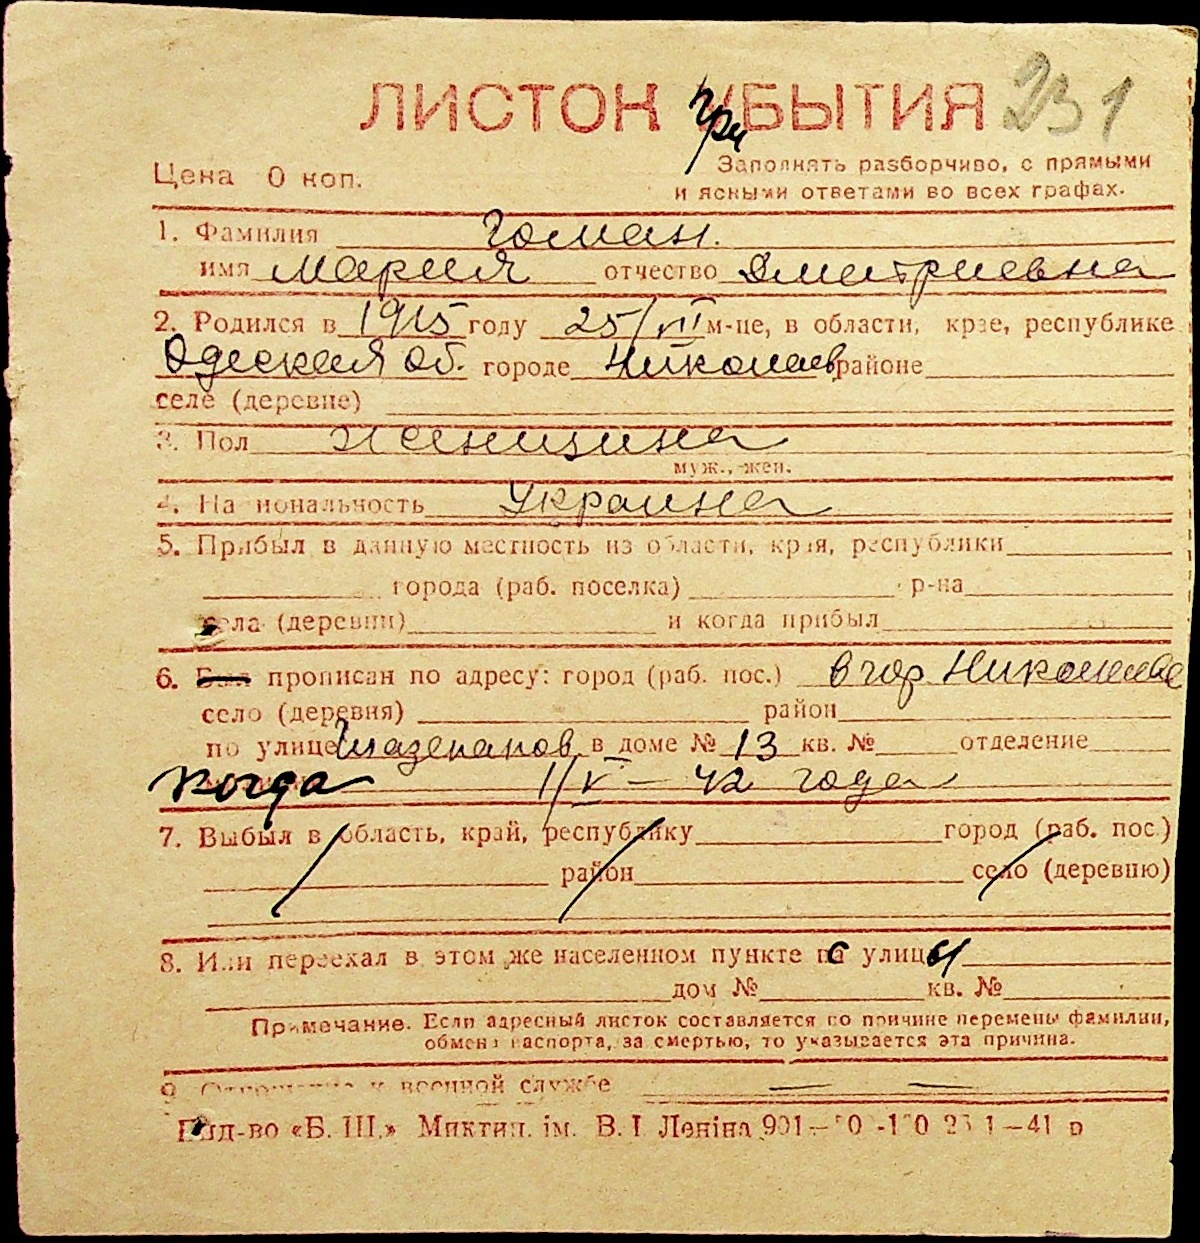 ЛИСТОК при БЫТИЯ 231
Цена 0 коп.
Заполнять разборчиво, с прямыми
и ясными ответами во всех графах.
1. Фамилия Гоман.
имя Мария отчество Дмитриевна
2. Родился в 1915 году 25/VII м-це, в области, крае, республике
Одеская об. городе Николаев районе
селе (деревне)
3. Пол женщина
муж., жен.
4. Национальность Украина
5. Прибыл в данную местность из области, края, республики
города (раб. поселка) р-на
села (деревни) и когда прибыл
6. Был прописан по адресу: город (раб. пос.) в гор Николаеве
село (деревня) район
по улице в доме № 13 кв. № отделение
когда 1/V – 42 года
7. Выбыл в область, край, республику город (раб. пос.)
район село (деревню)
8. Или переехал в этом же населенном пункте с улицы
дом № кв. №
Примечание. Если адресный листок составляется по причине перемены фамилии,
обмена паспорта, за смертью, то указывается эта причина.
9. Отношение к военной службе
Вид-во «Б. Ш.» Миктип. ім. В. І. Леніна